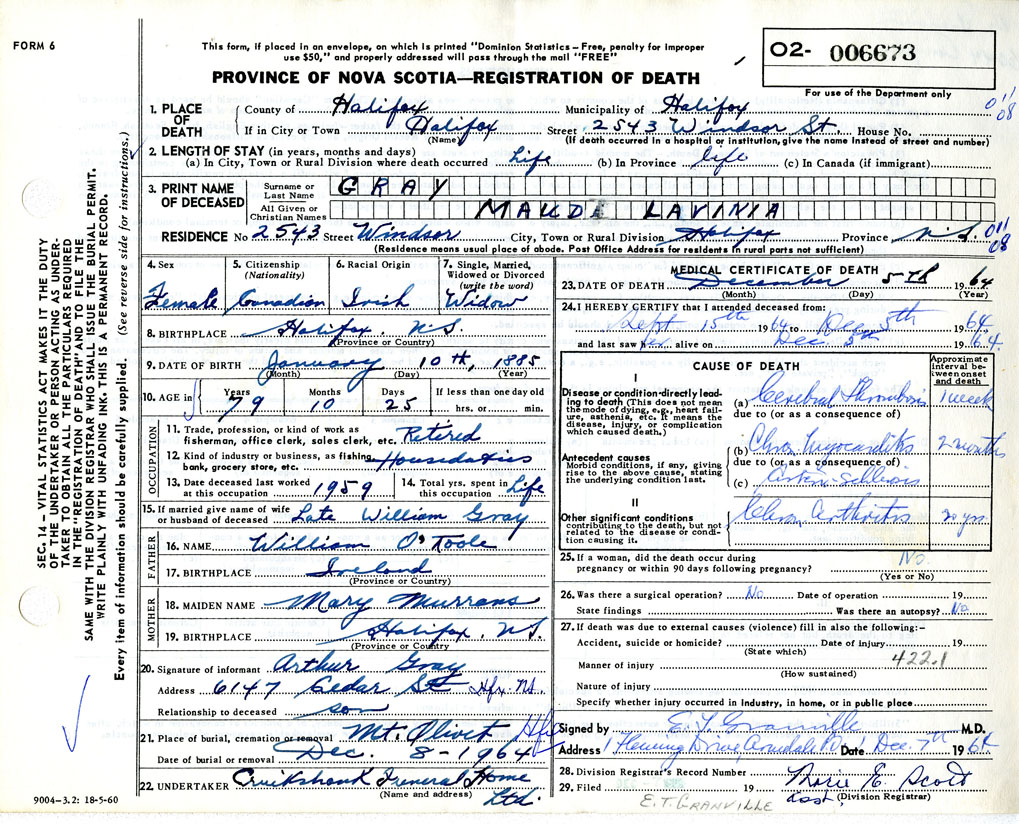 FORM 6
This form, if placed in an envelope, on which is printed "Dominion Statistics – Free, penalty for improper
use $50," and properly addressed will pass through the mail "FREE"
PROVINCE OF NOVA SCOTIA—REGISTRATION OF DEATH
02- 006673
For use of the Department only
011
08
1. PLACE OF DEATH
County of Halifax Municipality of Halifax
If in City or Town Halifax Street 2543 Windsor St. House No.
(Name) (If death occurred in a hospital or institution, give the name instead of street and number)
2. LENGTH OF STAY (in years, months and days)
(a) In City, Town or Rural Division where death occurred Life (b) In Province life (c) In Canada (if immigrant)
3. PRINT NAME OF DECEASED
Surname or Last Name GRAY
All Given or Christian Names MAUDE LAVINIA
RESIDENCE No 2543 Street Windsor City, Town or Rural Division Halifax Province N.S. 011
08
(Residence means usual place of abode. Post Office Address for residents in rural parts not sufficient)
4. Sex Female
5. Citizenship (Nationality) Canadian
6. Racial Origin Irish
7. Single, Married, Widowed or Divorced (write the word) Widow
8. BIRTHPLACE Halifax, N.S.
(Province or Country)
9. DATE OF BIRTH January 10th, 1885
(Month) (Day) (Year)
10. AGE in Years 79 Months 10 Days 25 If less than one day old hrs. or min.
OCCUPATION
11. Trade, profession, or kind of work as
fisherman, office clerk, sales clerk, etc. Retired
12. Kind of industry or business, as fishing,
bank, grocery store, etc.
13. Date deceased last worked at this occupation 1959
14. Total yrs. spent in this occupation Life
15. If married give name of wife
or husband of deceased Late William Gray
FATHER
16. NAME William O'Toole
17. BIRTHPLACE Ireland
(Province or Country)
MOTHER
18. MAIDEN NAME Mary Murrans
19. BIRTHPLACE Halifax, N.S.
(Province or Country
20. Signature of informant Arthur Gray
Address 6147 Cedar St Hfx N.S.
Relationship to deceased son
21. Place of burial, cremation or removal Mt. Olivet Hfx
Date of burial or removal Dec. 8 - 1964
22. UNDERTAKER Cruikshank Funeral Home
(Name and address) Ltd.
9004–3.2: 18-5-60
SEC. 14 — VITAL STATISTICS ACT MAKES IT THE DUTY
OF THE UNDERTAKER OR PERSON ACTING AS UNDER-
TAKER TO OBTAIN ALL THE PARTICULARS REQUIRED
IN THE "REGISTRATION OF DEATH" AND TO FILE THE
SAME WITH THE DIVISION REGISTRAR WHO SHALL ISSUE THE BURIAL PERMIT.
WRITE PLAINLY WITH UNFADING INK. THIS IS A PERMANENT RECORD.
Every item of information should be carefully supplied. (See reverse side for instructions.)
MEDICAL CERTIFICATE OF DEATH
23. DATE OF DEATH December 5TH 1964
(Month) (Day) (Year)
24. I HEREBY CERTIFY that I attended deceased from:
Sept 15th 1964 to Dec 5th 1964
and last saw her alive on Dec. 5th 1964.
CAUSE OF DEATH
Approximate interval between onset and death
I
Disease or condition directly lead-
ing to death (This does not mean
the mode of dying, e.g., heart fail-
ure, asthenia, etc. It means the
disease, injury, or complication
which caused death.)
(a) Cerebral Thrombosis 1 week
due to (or as a consequence of)
Antecedent causes
Morbid conditions, if any, giving
rise to the above cause, stating
the underlying condition last.
(b) Chron Myocarditis 2 months
due to (or as a consequence of)
(c)
II
Other significant conditions
contributing to the death, but not
related to the disease or condi-
tion causing it.
Chron arthritis 20 yrs
25. If a woman, did the death occur during
pregnancy or within 90 days following pregnancy? No.
(Yes or No)
26. Was there a surgical operation? No Date of operation 19
State findings Was there an autopsy? No
27. If death was due to external causes (violence) fill in also the following:–
Accident, suicide or homicide? Date of injury 19
(State which) 422.1
Manner of injury
(How sustained)
Nature of injury
Specify whether injury occurred in industry, in home, or in public place
Signed by E. T. Granville M.D.
Address 1 Fleming Drive Armdale PO Date Dec. 7th 1964
28. Division Registrar's Record Number
29. Filed 19 Marie E. Scott
Asst. (Division Registrar)
E.T. GRANVILLE